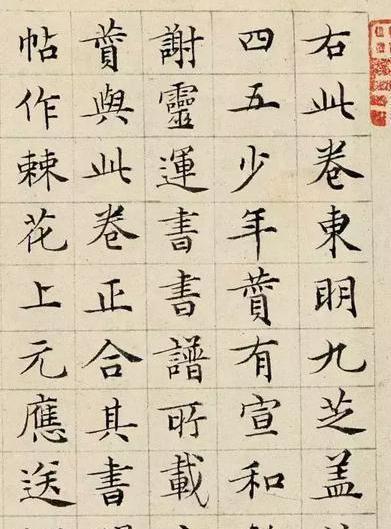 右此卷東明九芝盖
四五少年贊有宣和
謝靈運書書譜所載
贊與此卷正合其書
帖作棘花上元應送